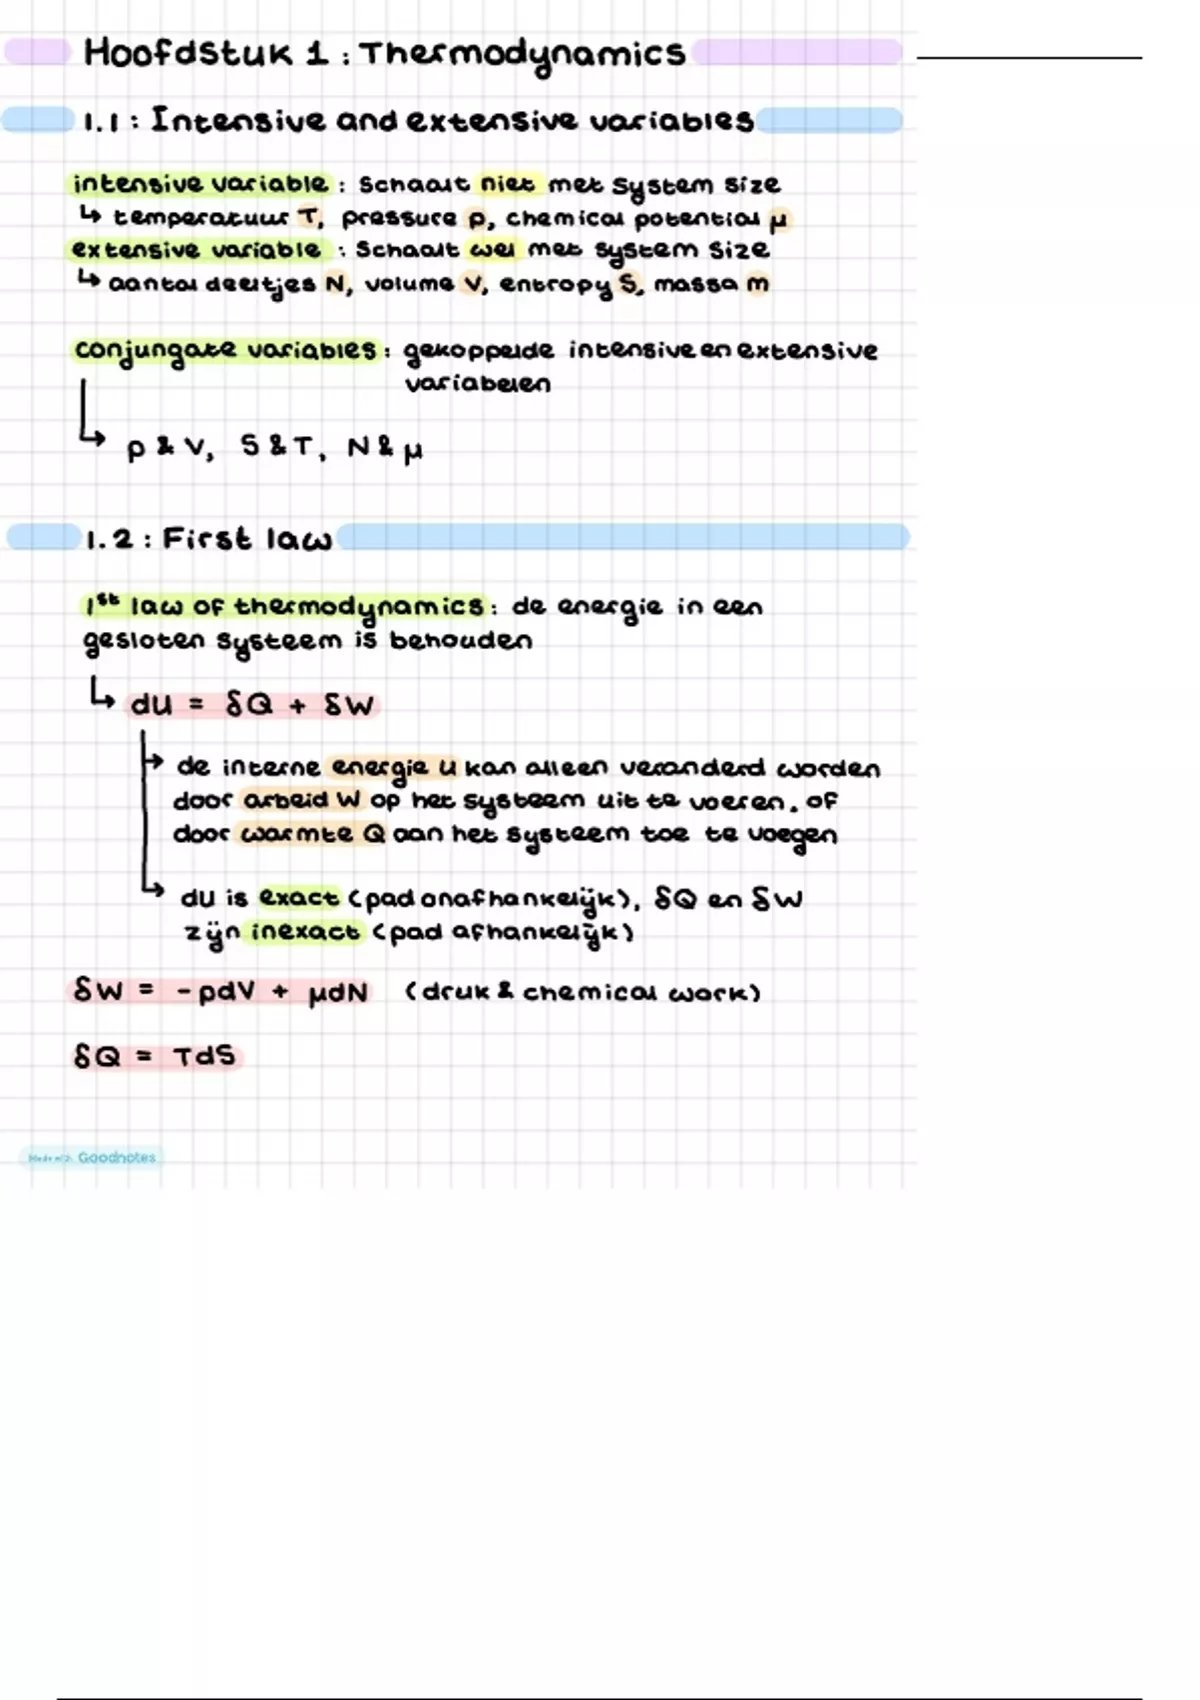 Hoofdstuk 1 : Thermodynamics
1.1 : Intensive and extensive variables
intensive variable : schaalt niet met system size
↳ temperatuur T, pressure p, chemical potential μ
extensive variable : schaalt wel met system size
↳ aantal deeltjes N, volume V, entropy S, massa m
conjungate variables : gekoppelde intensive en extensive
variabelen
p & V, S & T, N & μ
1.2 : First law
1st law of thermodynamics : de energie in een
gesloten systeem is behouden
↳ dU = δQ + δW
→ de interne energie U kan alleen veranderd worden
door arbeid W op het systeem uit te voeren, of
door warmte Q aan het systeem toe te voegen
→ dU is exact (pad onafhankelijk), δQ en δW
zijn inexact (pad afhankelijk)
δW = -pdV + μdN (druk & chemical work)
δQ = TdS
Made with Goodnotes